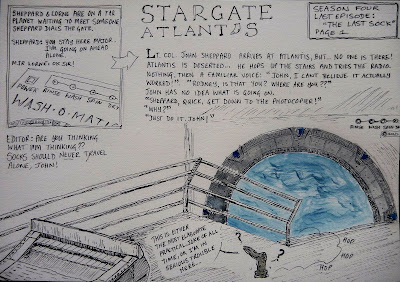 SHEPPARD & LORNE ARE ON A FAR
PLANET WAITING TO MEET SOMEONE
SHEPPARD DIALS THE GATE.
SHEPPARD: YOU STAY HERE MAJOR.
I'M GOING ON AHEAD
ALONE.
MJR LORNE: OK SIR!
POWER RINSE WASH SPIN DRY
WASH-O-MATIC
STARGATE
ATLANTIS
SEASON FOUR
LAST EPISODE:
"THE LAST SOCK"
PAGE 1
LT COL. JOHN SHEPPARD ARRIVES AT ATLANTIS, BUT... NO ONE IS THERE!
ATLANTIS IS DESERTED... HE HOPS UP THE STAIRS AND TRIES THE RADIO.
NOTHING, THEN A FAMILIAR VOICE: "JOHN, I CAN'T BELIEVE IT ACTUALLY
WORKED!" "RODNEY, IS THAT YOU? WHERE ARE YOU??"
JOHN HAS NO IDEA WHAT IS GOING ON.
"SHEPPARD, QUICK, GET DOWN TO THE PHOTOCOPIER!"
"WHY?"
"JUST DO IT, JOHN!"
RINSE WASH SPIN
EDITOR: ARE YOU THINKING
WHAT I'M THINKING??
SOCKS SHOULD NEVER TRAVEL
ALONE, JOHN!
THIS IS EITHER
THE MOST ELABORATE
PRACTICAL JOKE OF ALL
TIME, OR I'M IN
SERIOUS TROUBLE
HERE.
? ?
HOP
HOP
HOP